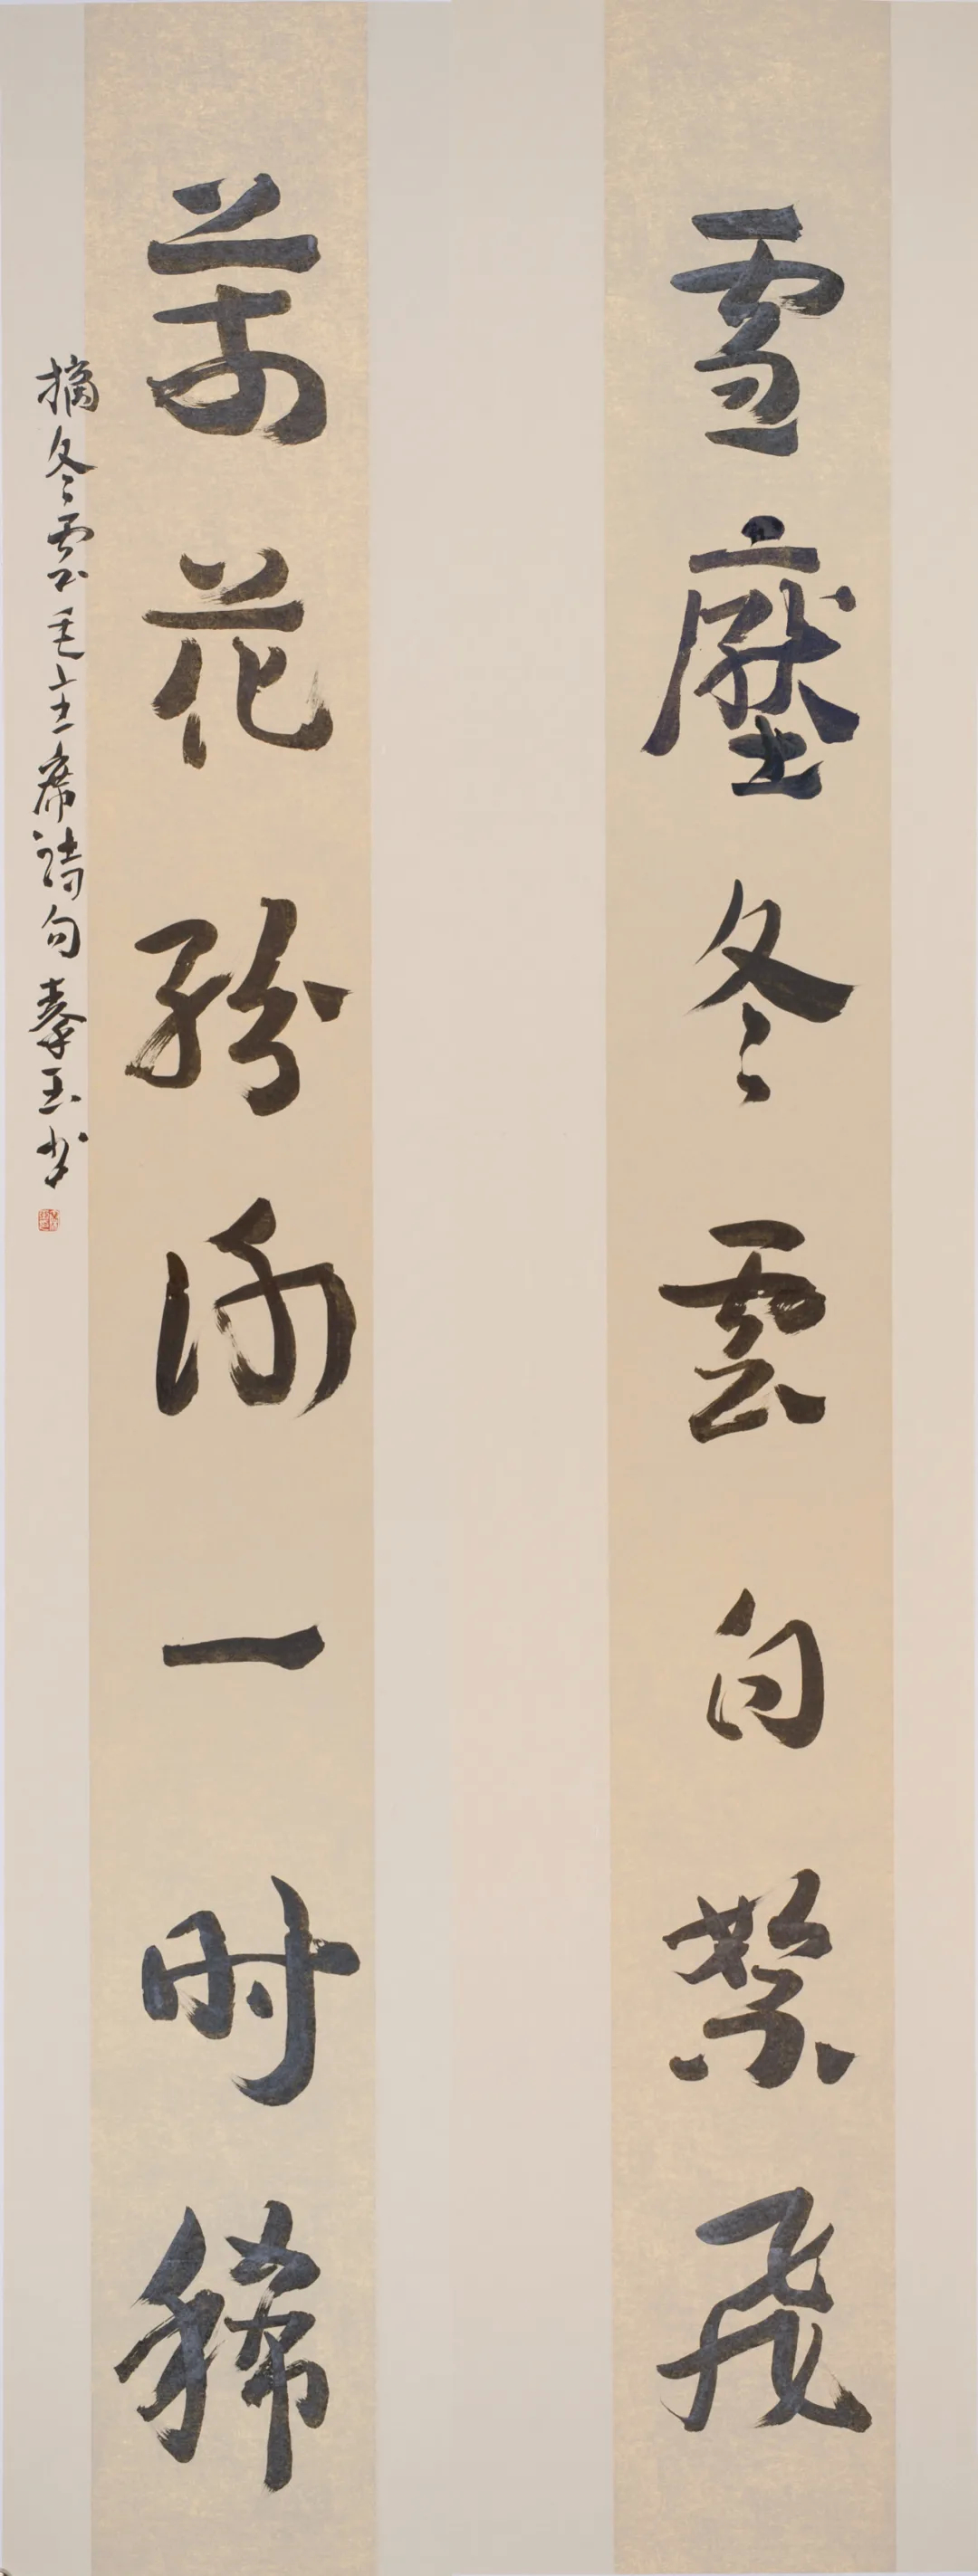 雪壓冬雲白絮飛
萬花紛謝一时稀
摘冬雲毛主席詩句秦玉书